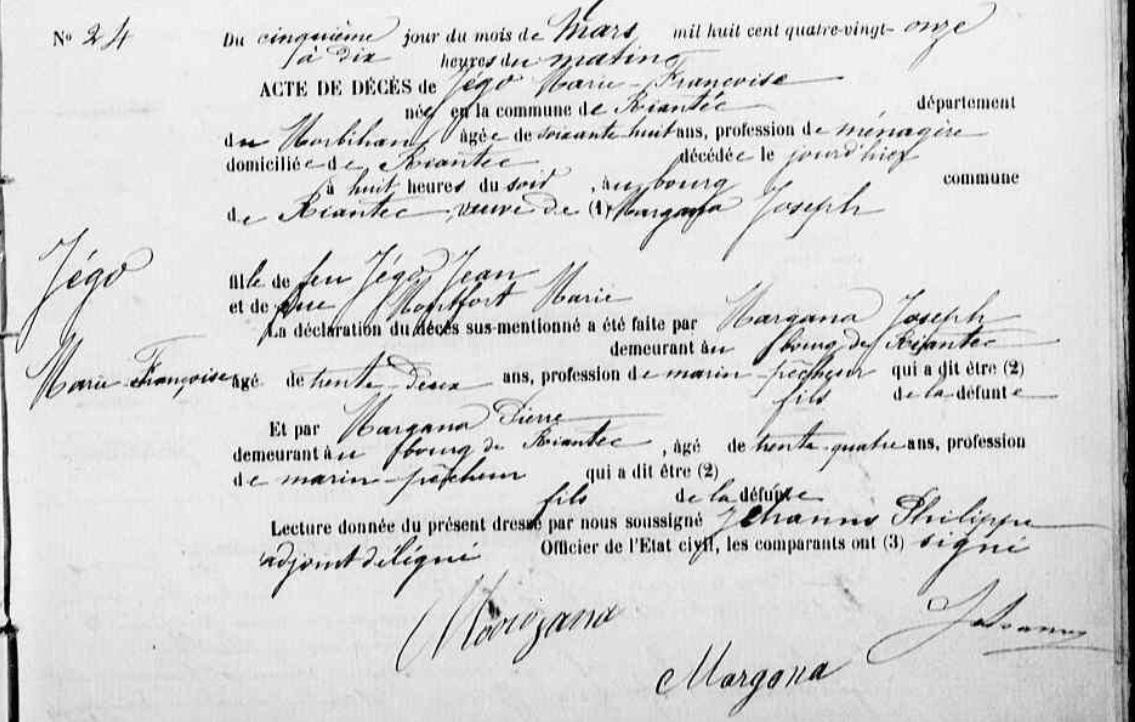 N° 24
Du cinquième jour du mois de Mars mil huit cent quatre-vingt- onze
à dix heures du matin
ACTE DE DÉCÈS de Jégo Marie-Françoise
née en la commune de Riantec département
du Morbihan âgée de soixante-huit ans, profession de ménagère
domiciliée de Riantec décédée le jourd'hier
à huit heures du soir, au bourg commune
de Riantec veuve de (1) Margana Joseph
Jégo
Marie Françoise
fille de feu Jégo Jean
et de feue Montfort Marie
La déclaration du décès sus-mentionné a été faite par Margana Joseph
demeurant au bourg de Riantec
âgé de trente-deux ans, profession de marin-pêcheur qui a dit être (2)
fils de la défunte
Et par Margana Pierre
demeurant au bourg de Riantec, âgé de trente-quatre ans, profession
de marin-pêcheur qui a dit être (2)
fils de la défunte
Lecture donnée du présent dressé par nous soussigné Jehanno Philippe
adjoint délégué Officier de l'Etat civil, les comparants ont (3) signé
Margana
Jehanno
Margana